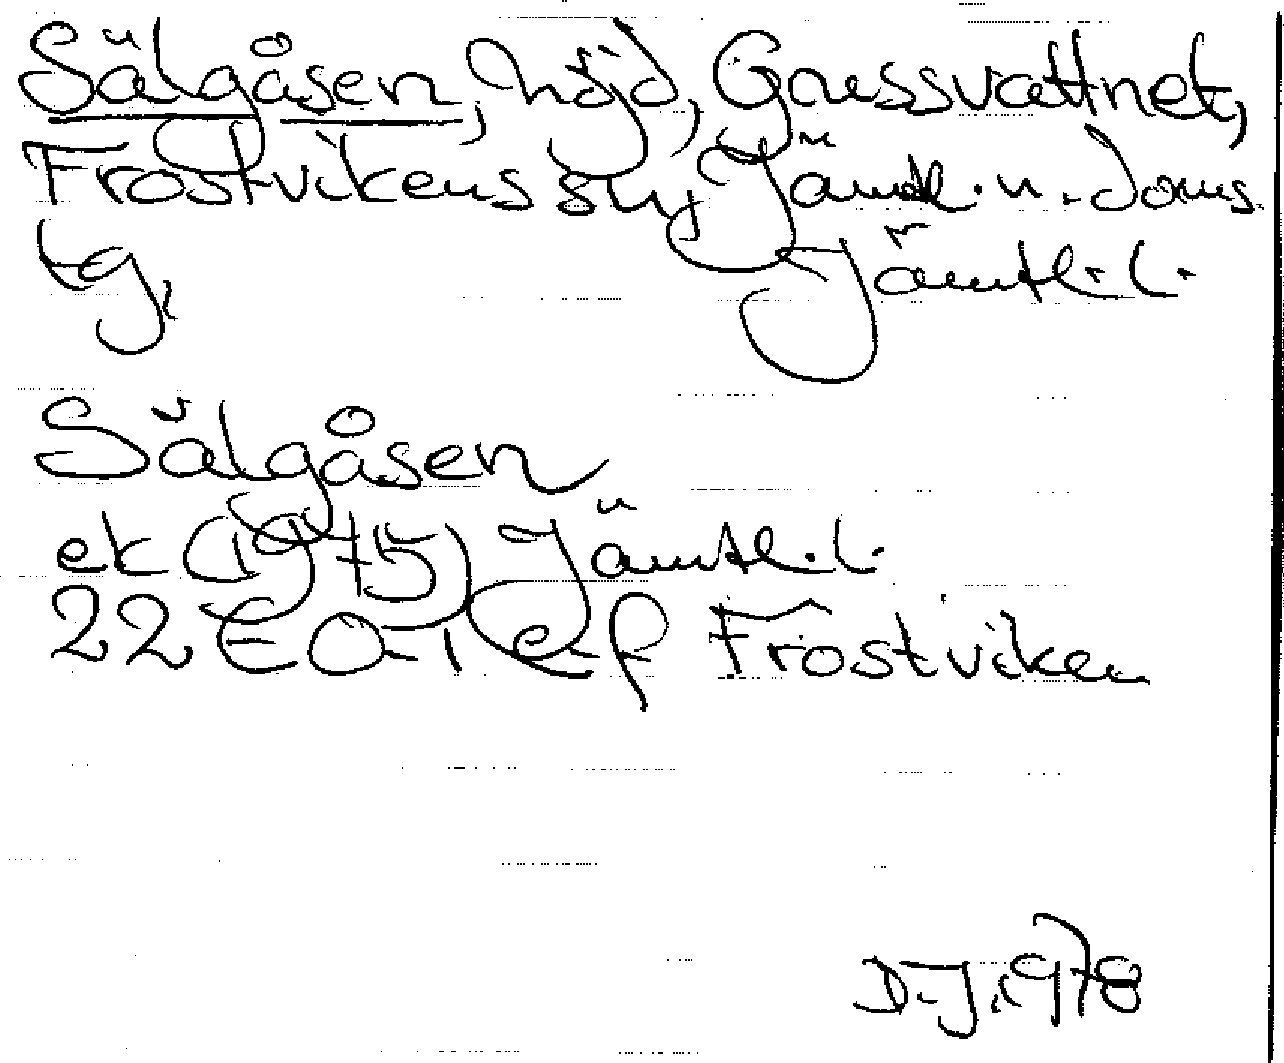 Sälgåsen, höjd, Gaussvattnet,
Frostvikens sn, Jämtl. n. doms.
tg, Jämtl. l.
Sälgåsen
ek (1975) Jämtl. l.
22 E 0-1 e-f Frostviken
D.J. 1978